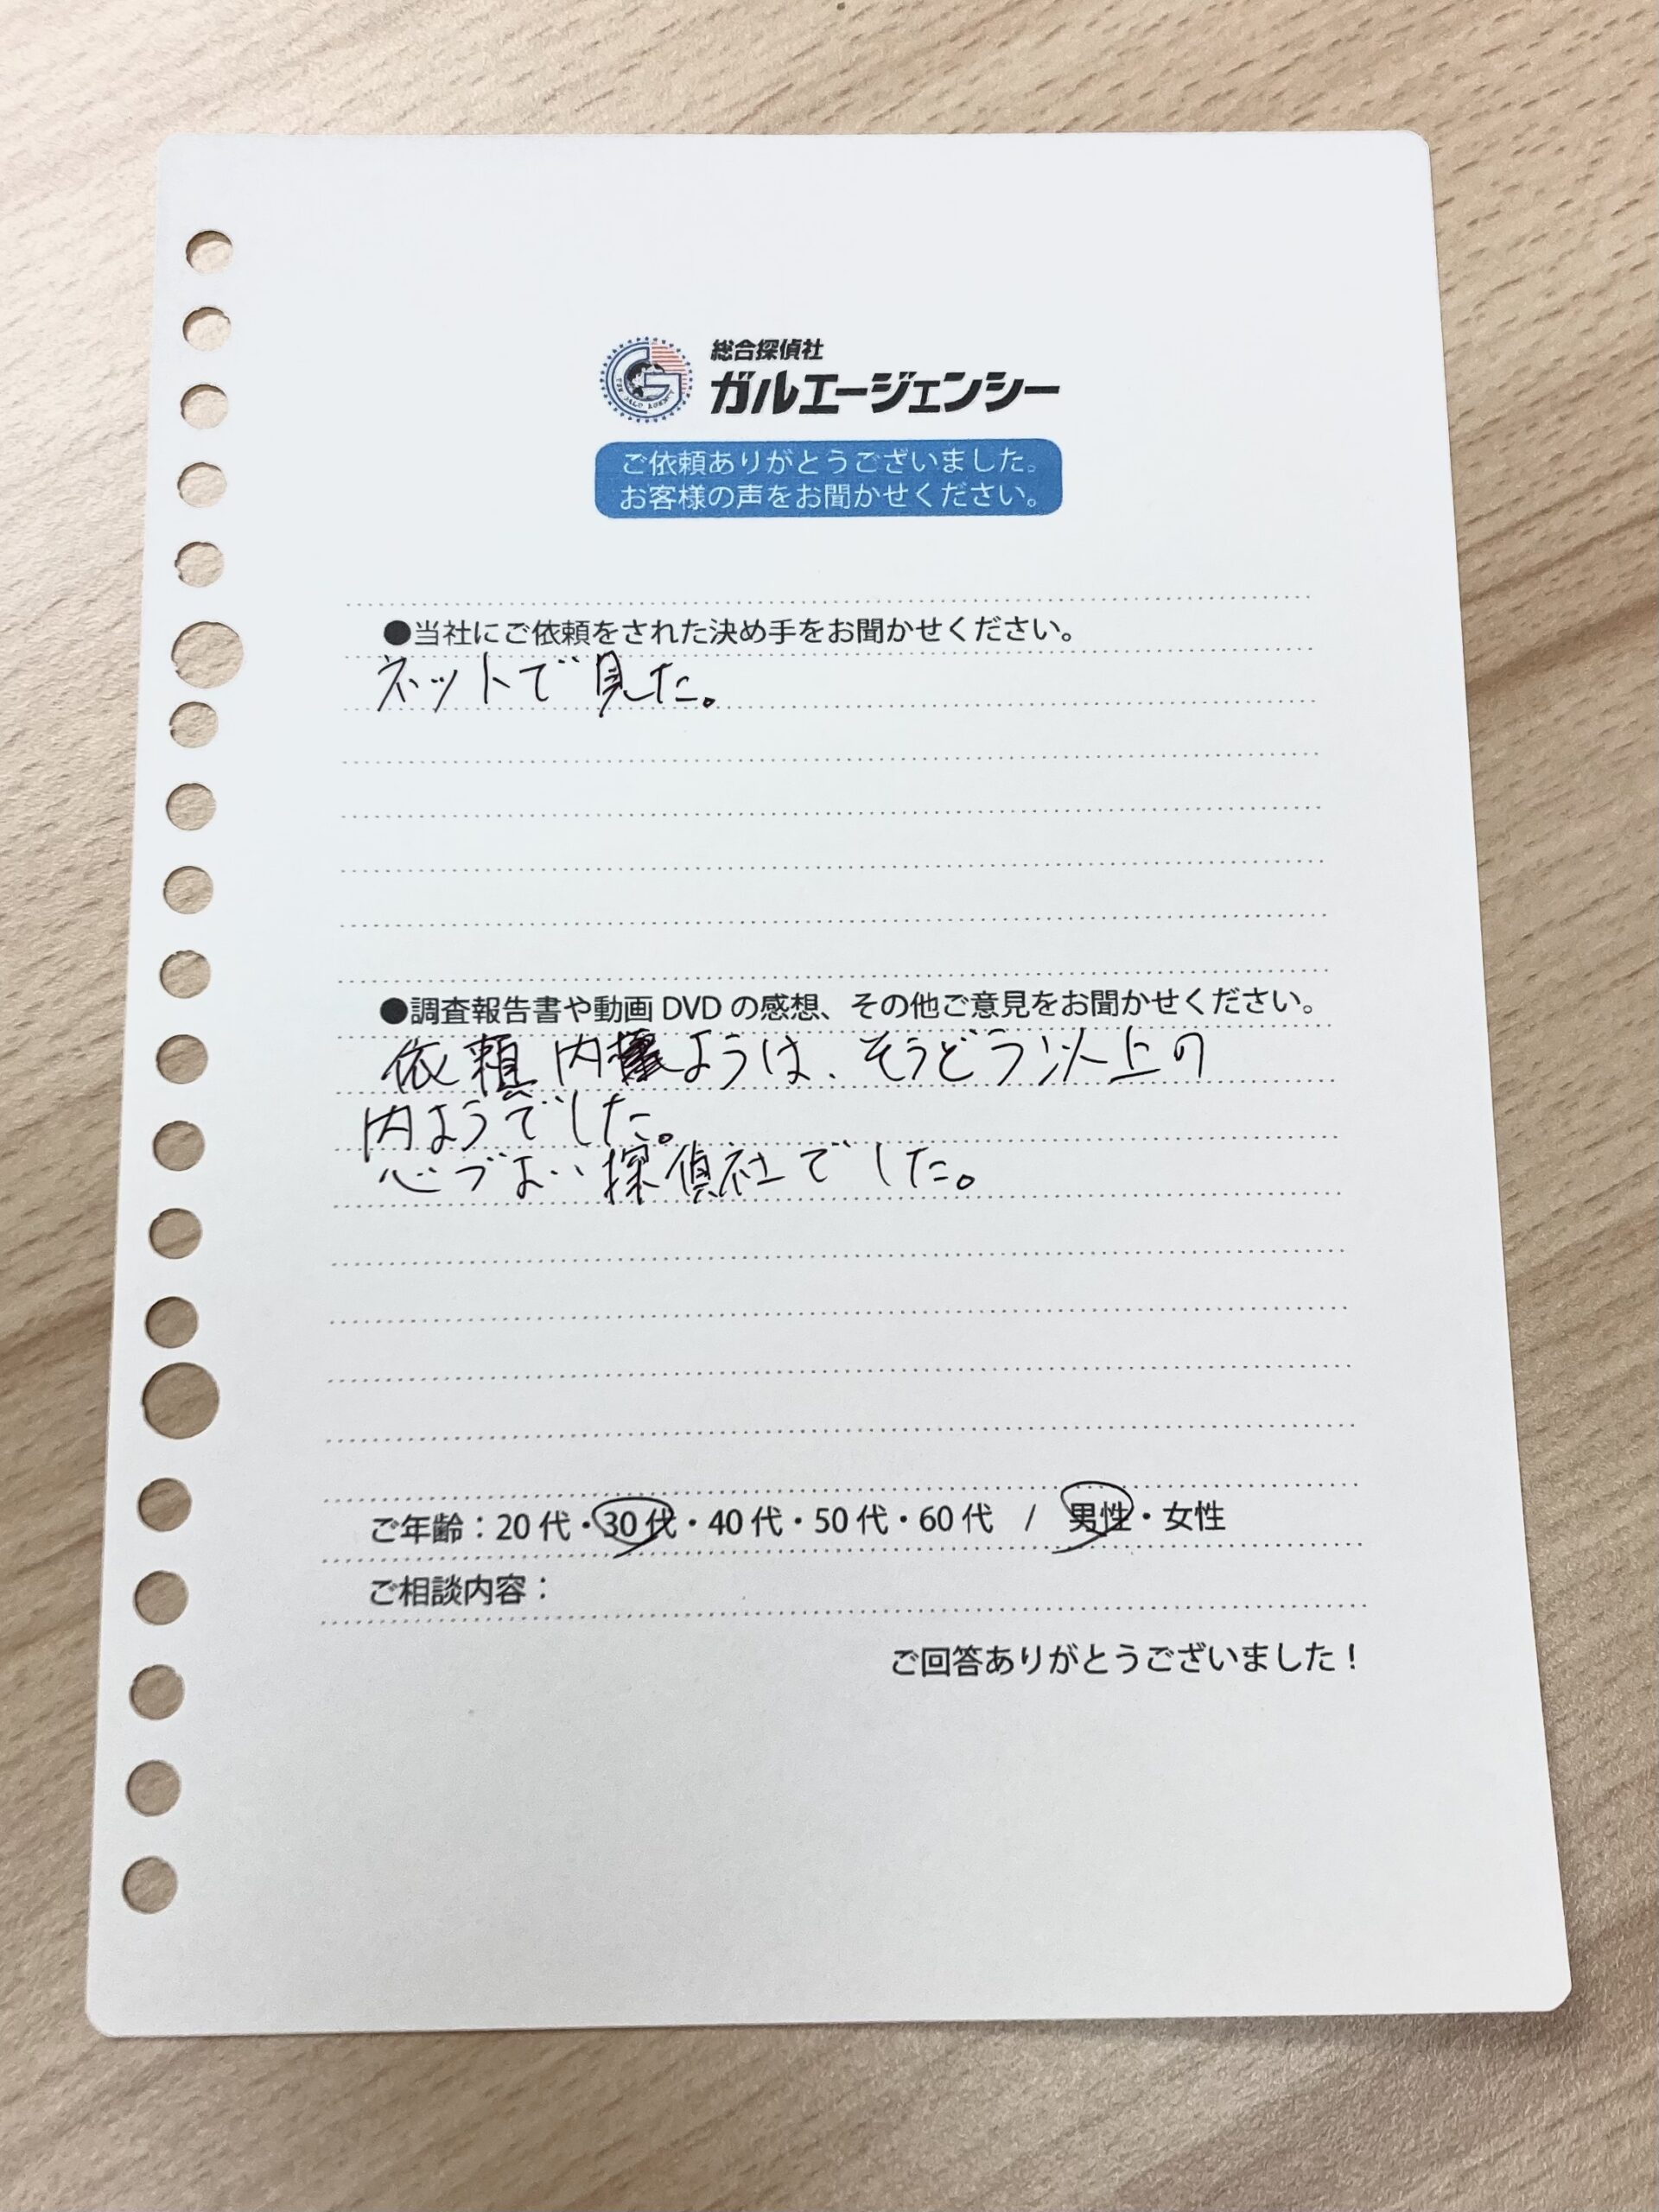 総合探偵社
ガルエージェンシー
ご依頼ありがとうございました。
お客様の声をお聞かせください。
●当社にご依頼をされた決め手をお聞かせください。
ネットで見た。
●調査報告書や動画 DVD の感想、その他ご意見をお聞かせください。
依頼内ようは、そうどう以上の
内ようでした。
心づよい探偵社でした。
ご年齢：20 代・30 代・40 代・50 代・60 代 / 男性・女性
ご相談内容：
ご回答ありがとうございました！